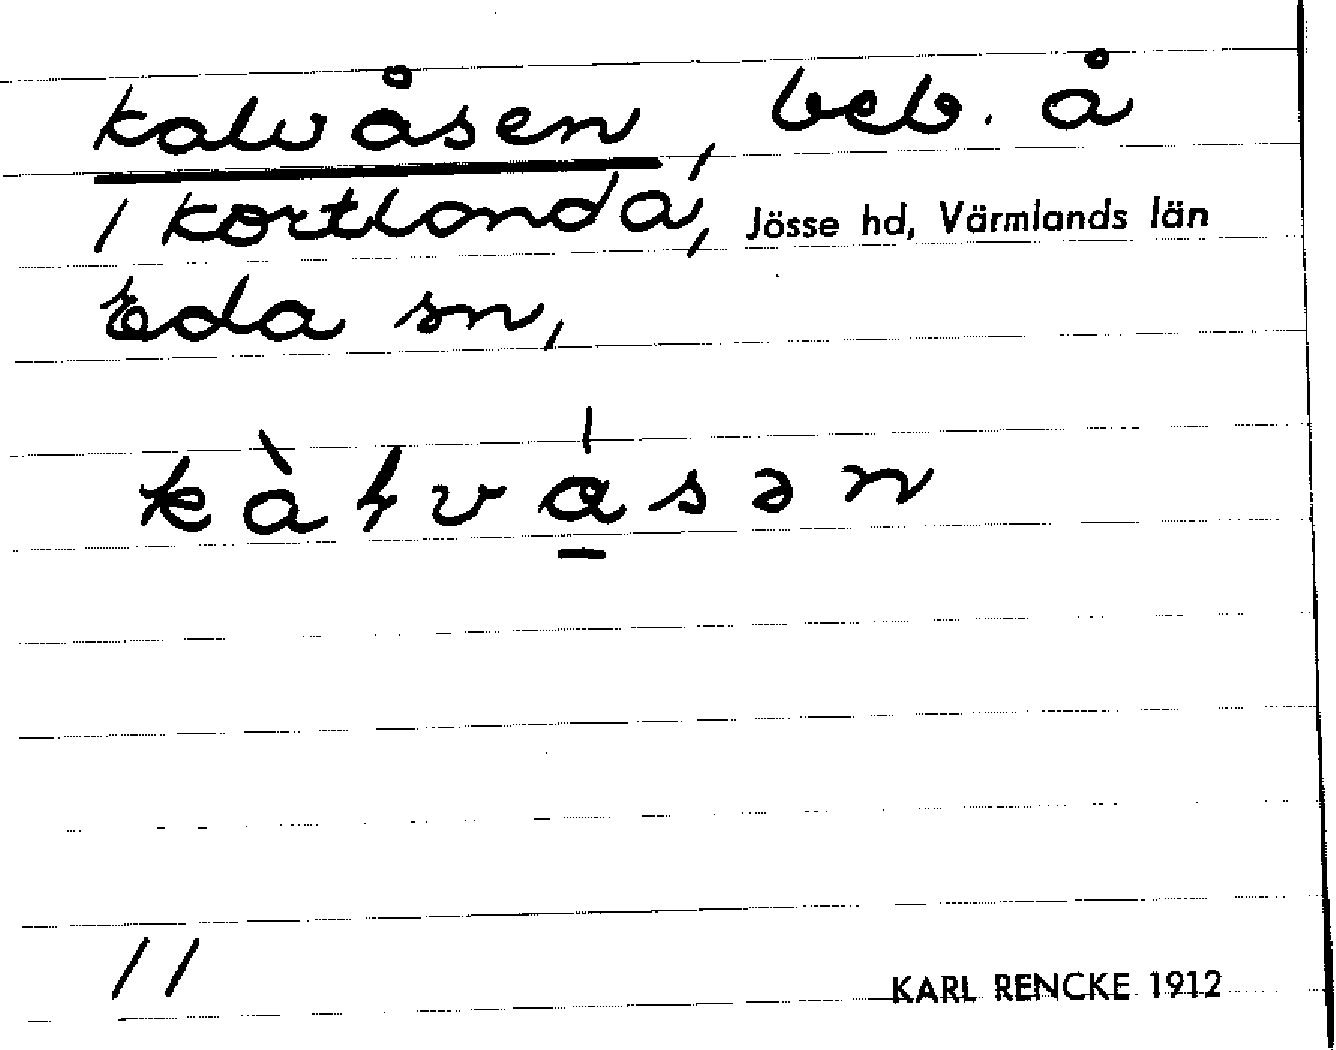 Kalvåsen, beb. å
1 Kortlanda, Jösse hd, Värmlands län
Eda sn,
11
KARL RENCKE 1912